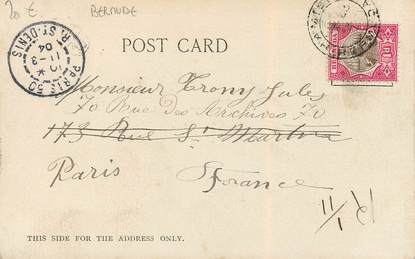 20 €
BERMUDE
POST CARD
PARIS 50
R. ST-DENIS
10 *
11-3
04
Monsieur Trony Jules
70 Rue des Archives 70
173 Rue St Martin
Paris France
THIS SIDE FOR THE ADDRESS ONLY.